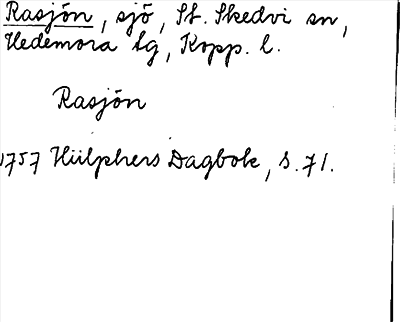 Rasjön, sjö, St. Skedvi sn,
Hedemora tg, Kopp. l.
Rasjön
1757 Hülphers Dagbok, s. 71.